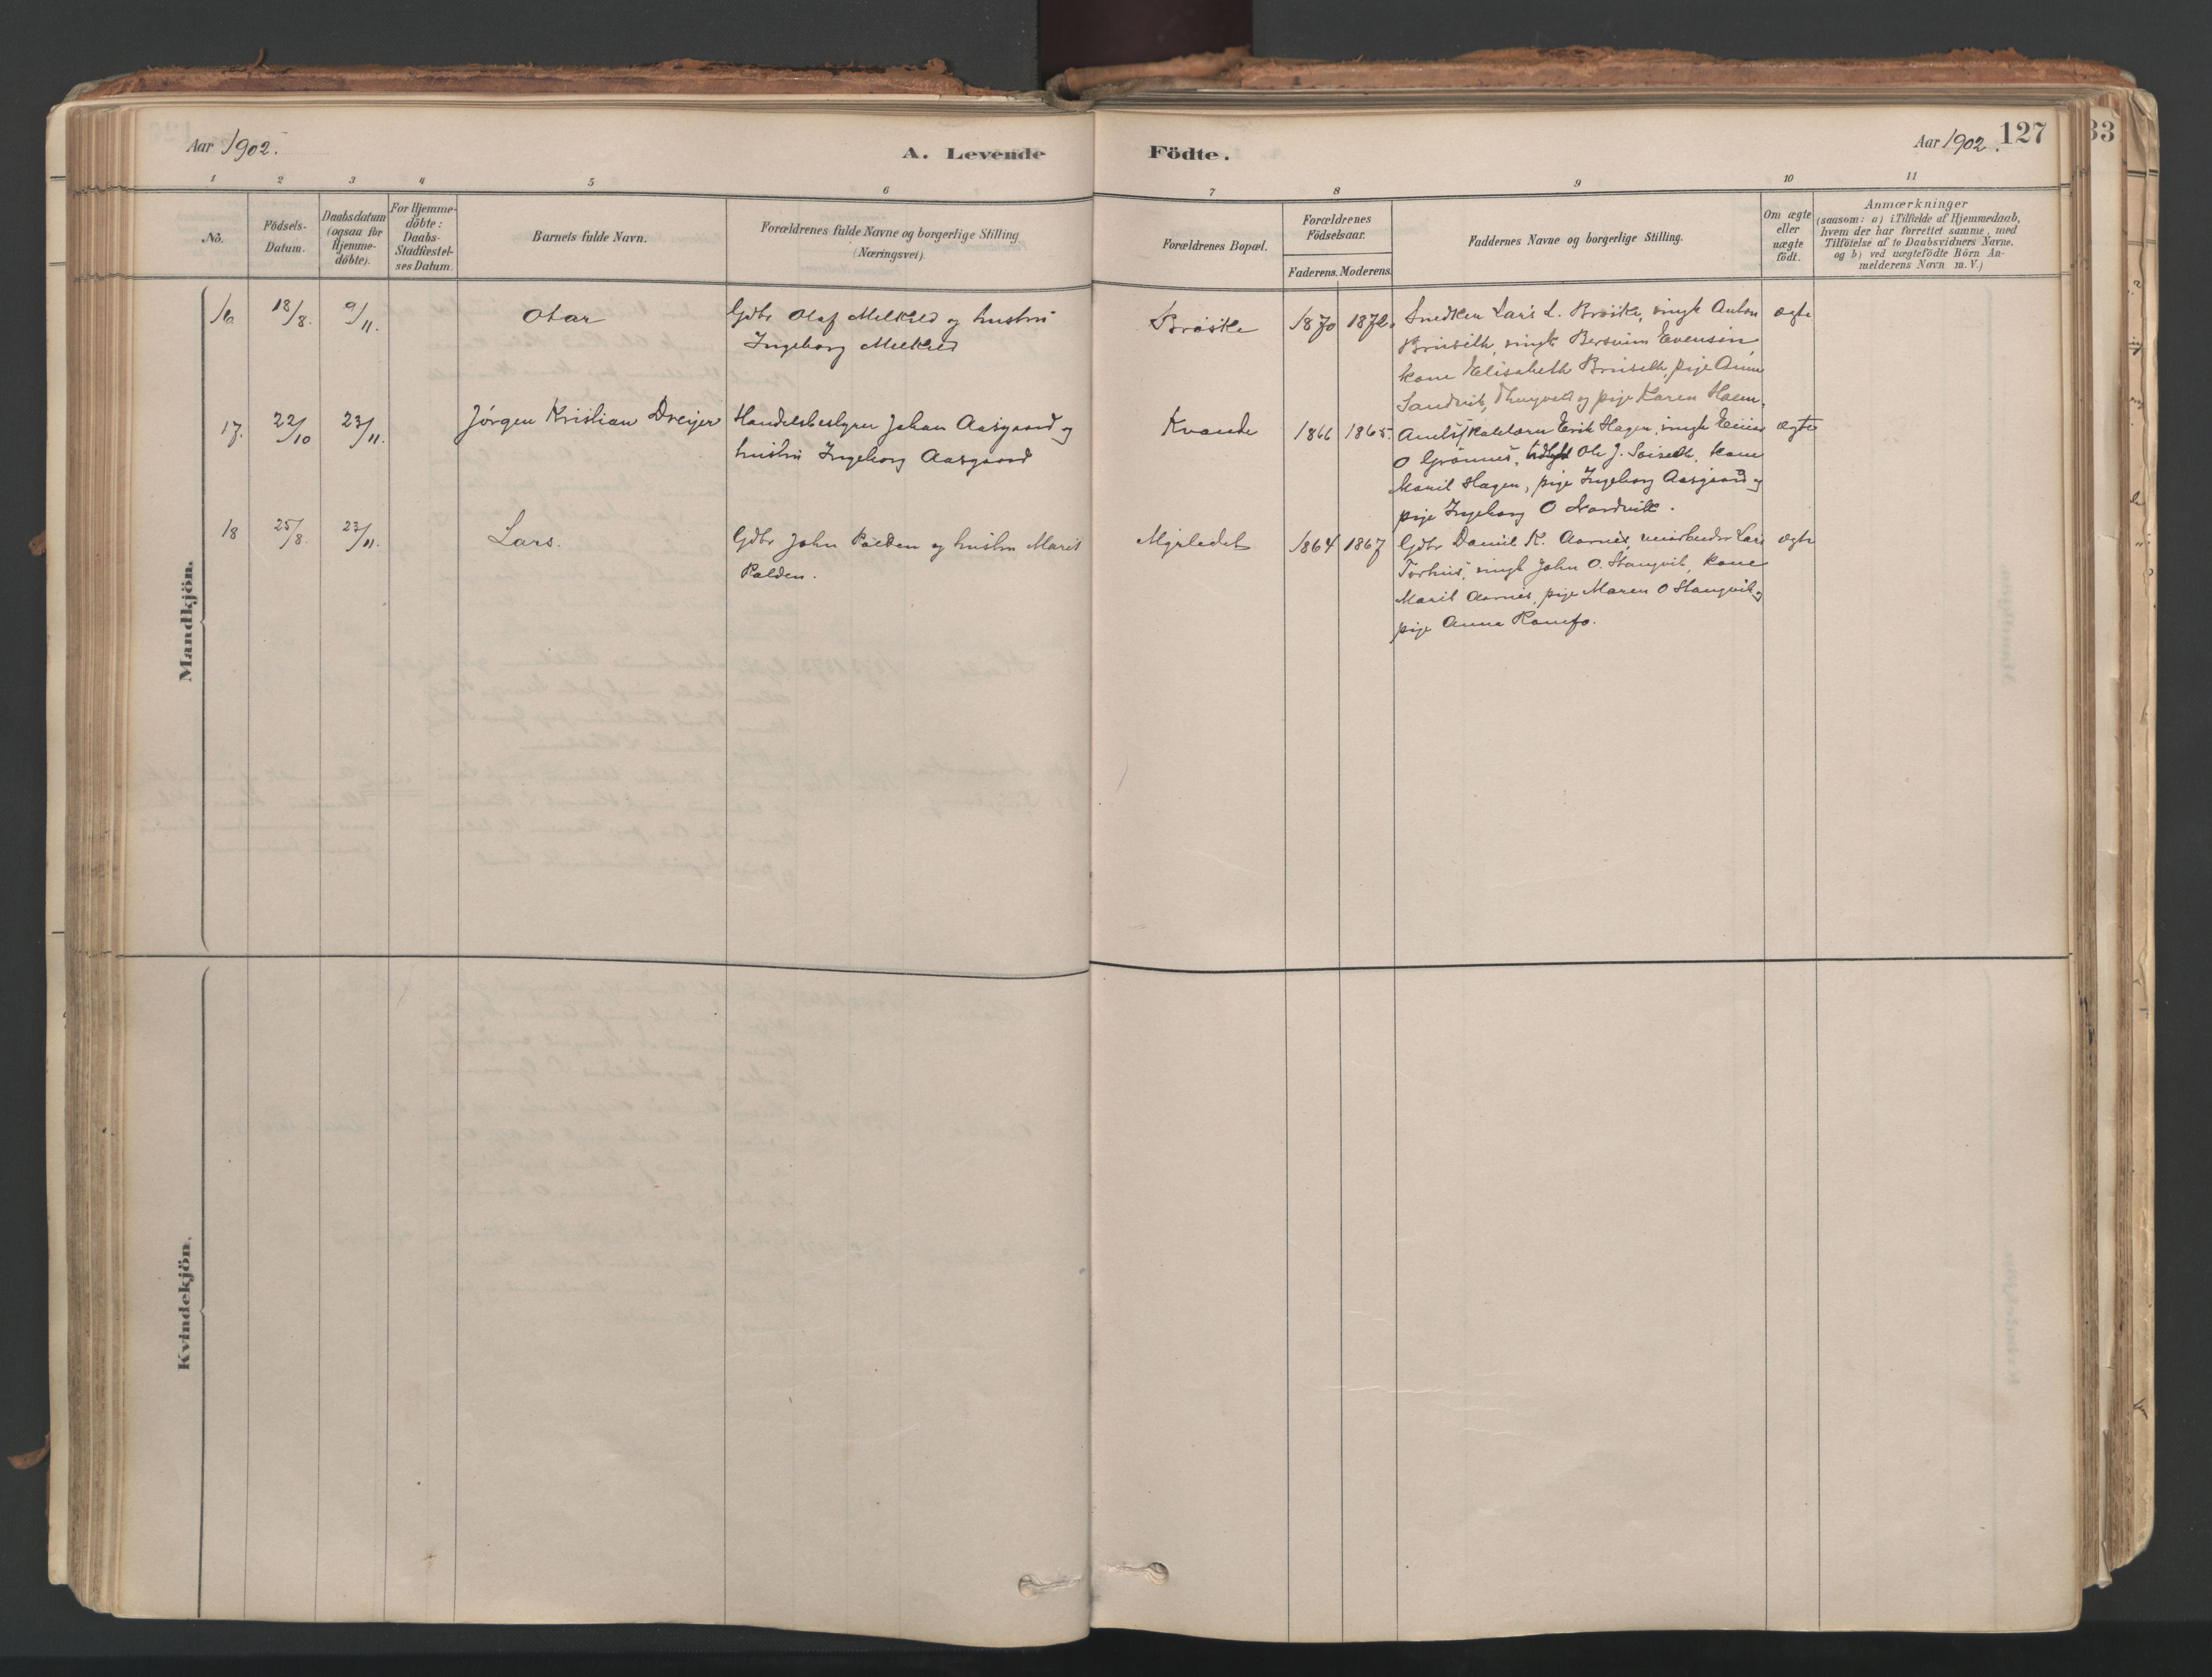 Aar 1902.
A. Levende
1 2 3 4 5 6
No.
Födsels-
Datum.
Daabsdatum
(ogsaa for
Hjemme-
döbte).
For Hjemme-
döbte:
Daabs-
Stadfæstel-
ses Datum.
Barnets fulde Navn.
Forældrenes fulde Navne og borgerlige Stilling
(Næringsvei).
Mandkjön.
16 18/8. 9/11. Otar Gdbr Olaf Melkild og hustru
Ingeborg Melkild
17. 22/10 23/11. Jörgen Kristian Dreyer Handelsbestyrer Johan Aasgaard og
hustru Ingeborg Aasgaard
18 25/8. 23/11. Lars. Gdbr John Polden og hustru Marit
Polden.
Kvindekjön.
Födte.
Aar 1902. 127
33
7 8 9 10 11
Forældrenes Bopæl.
Forældrenes
Födselsaar.
Faderens. Moderens.
Faddernes Navne og borgerlige Stilling.
Om ægte
eller
uægte
födt.
Anmærkninger
(saasom: a) i Tilfælde af Hjemmedaab,
hvem der har forrettet samme, med
Tilföielse af to Daabsvidners Navne,
og b) ved uægtefödte Börn An-
melderens Navn m. V.)
Bröske 1870 1872. Snedker Lars L. Bröske, ungk Anton ægte
Bruseth, ungk Evensen,
kone Elisabeth Bruseth, pige
Sandvik, og pige Karen Holm.
Kvande 1866 1865. Erik Hagen, ungk Einar ægte
O Grönnes, Ole J. kone
Marit Hagen, pige Ingeborg Aasgaard og
pige Ingeborg O Nordvik.
Myrledet 1864 1867 Gdbr Daniel K. Aarnes, Lars ægte
Torhus, ungk John O. Stangvik, kone
Marit Aarnes, pige Maren O Stangvik og
pige Anna Romfo.